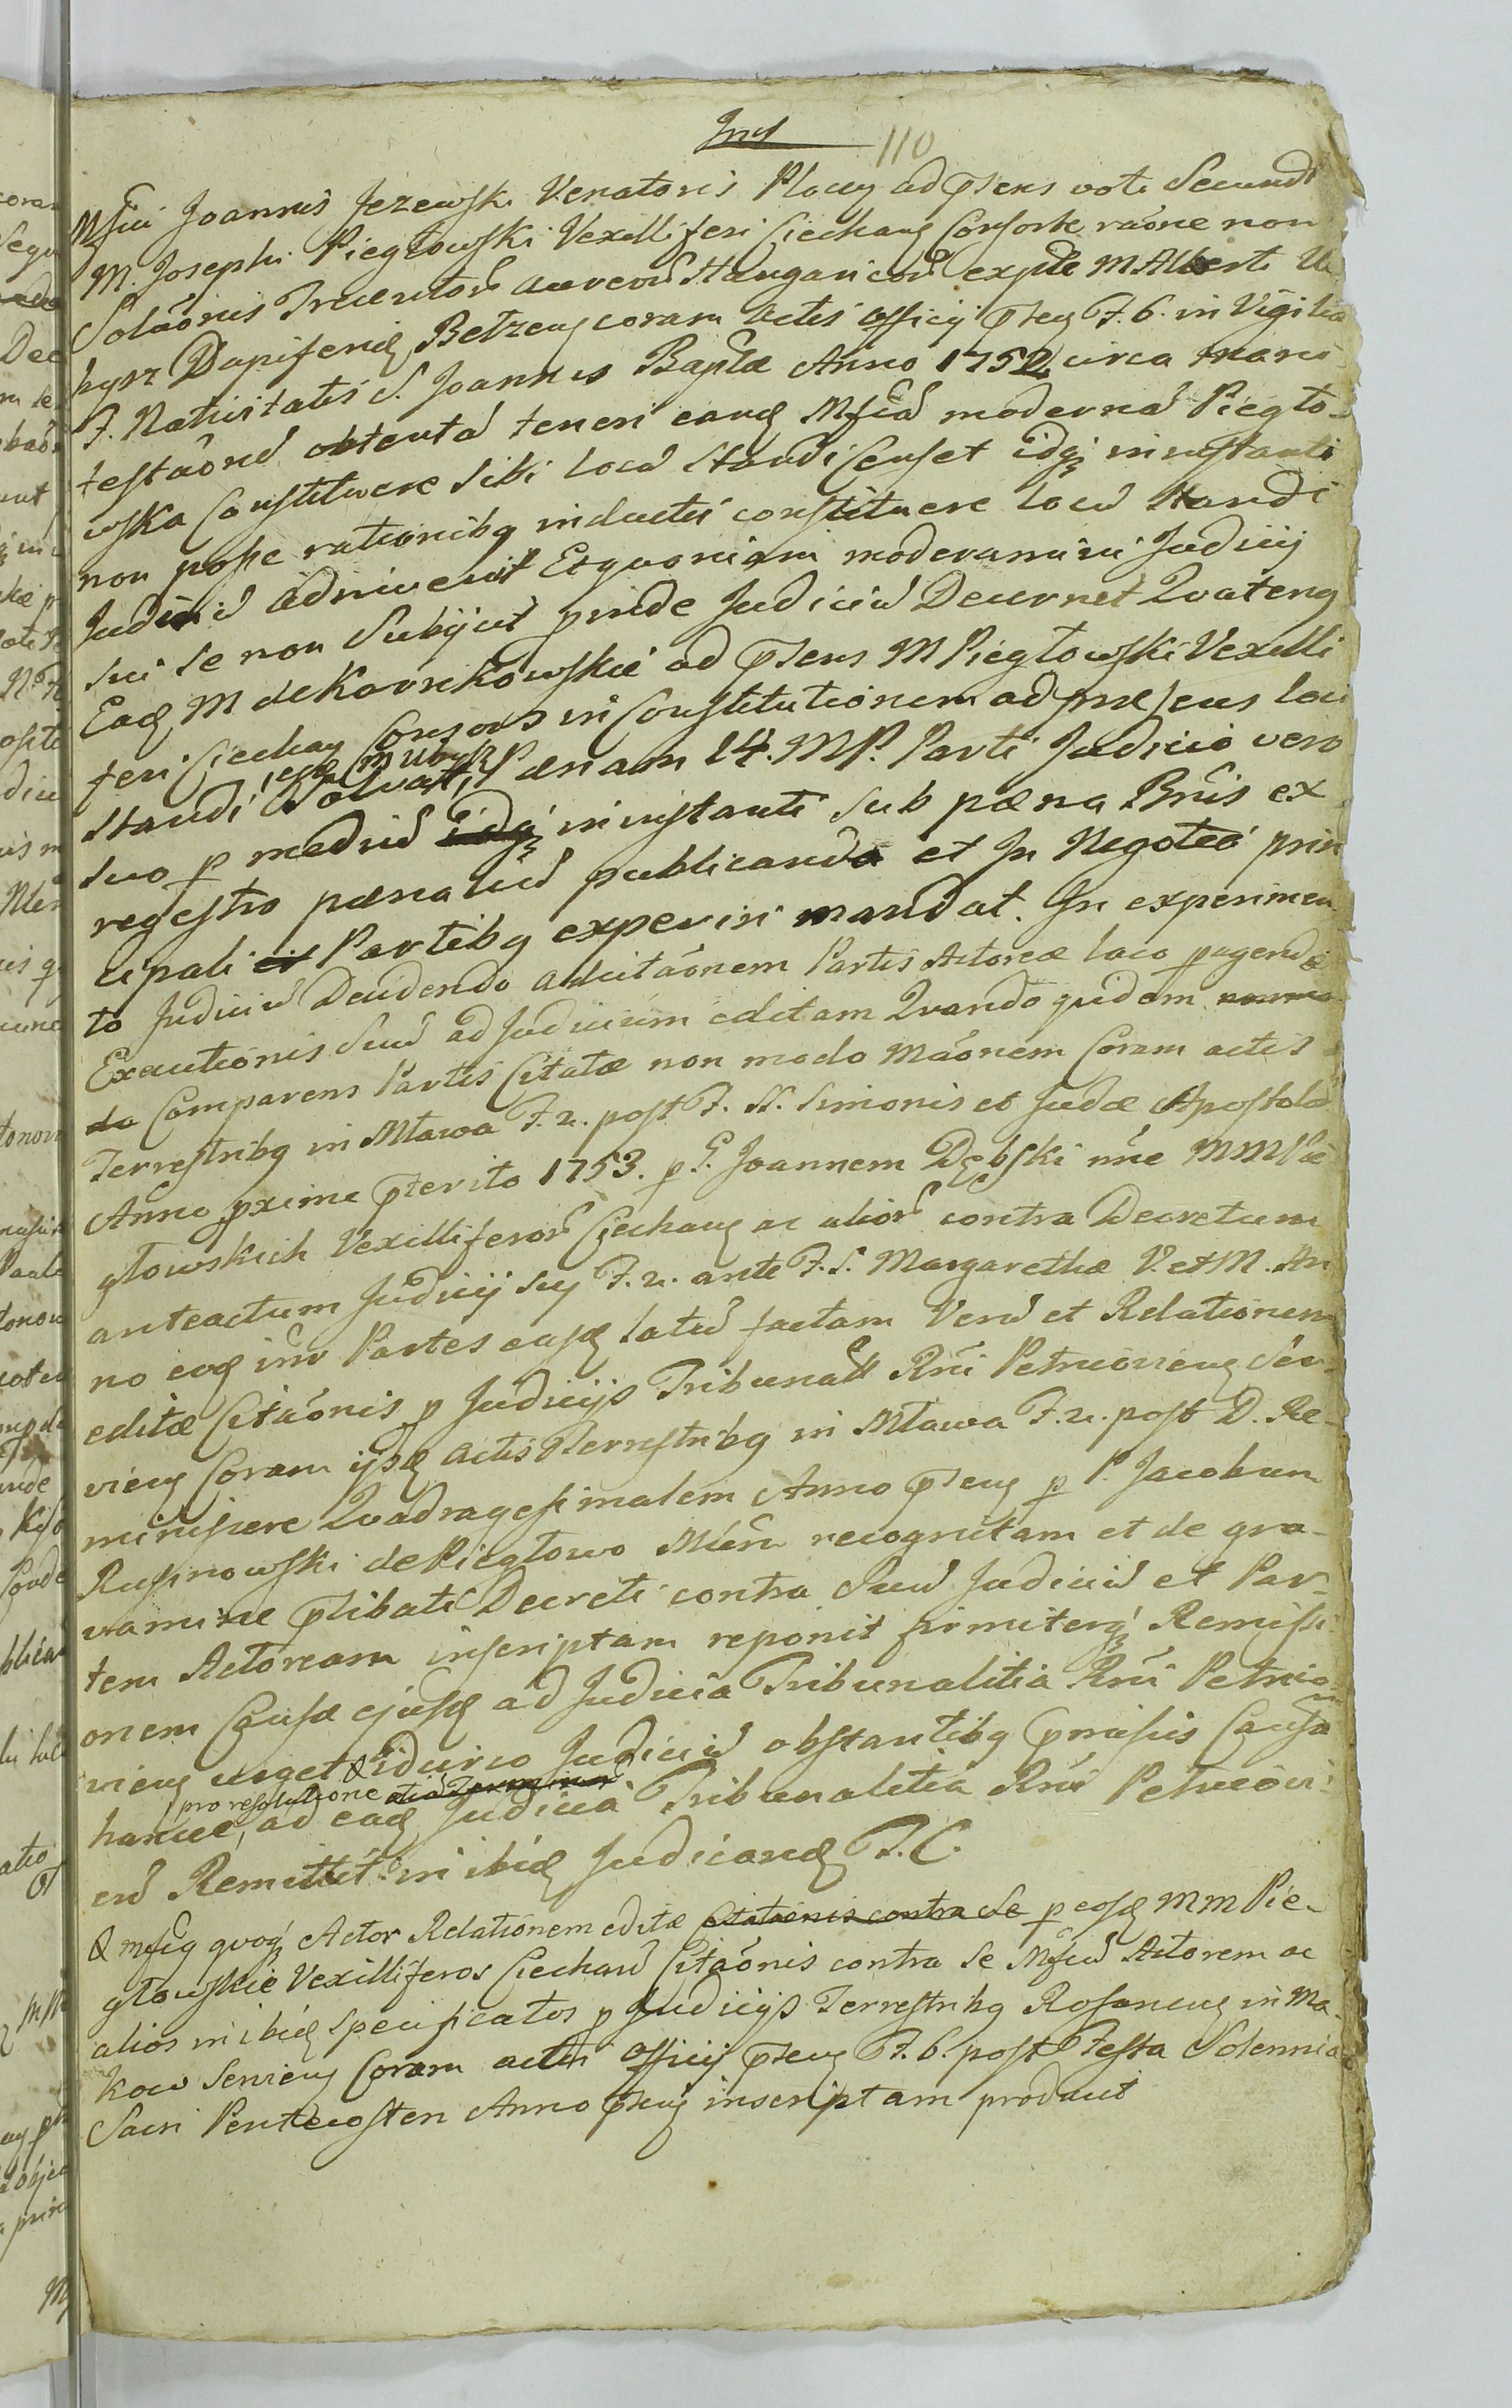 110
Mfici Joannis Jezewski Venatoris Plocen ad pñens voti Secundi
M. Josephi Piegłowski Vexilliferi Ciechanoñ Consorte raóne non
Soluóonis Trecentorũ aureorũ Hungaricorũ ex pte M Alberti
Dapiferidæ Belzeñ coram Actis Officij pñen F. 6. in Vigilia
F. Nativitatis S. Joannis Baptæ Anno 1752 circa mani-
testaõnẽ obtentã teneri eand Mficã modernã Piegło-
wska Constituere sibi locũ standi Censet idq̃ in instanti
non posse rationibq inductis constituere locũ standi
Judiciũ adinvenit Et quoniam moderamini Judicij
sui se non Subijcit proinde Judiciũ Decernet Quateng
Ead M de Karnkowskie ad pñens M Piegłowski Vexilli
feri Ciechan Consors in Constitutionem ad præsens loci
standi Solvat Pænam 14. MP. Parti Judicio vero
suo p mediũ idq̃ in instanti sub pæna Bñis ex
regestro pænaliũ publicanda et In Negotio prin
cipali Partibq experiri mandat. In experimen
to Judiciũ Decidendo adcitaõnem Partis Actoreæ loco pagendæ
Executionis suũ ad Judicium editam Quando quidem
Comparens Partis Citatæ non modo Maõnem Coram actis
Terrestribq in Mława F. 2. post F. SS. Simonis et Judæ Apostolorũ
Anno pxime pterito 1753. p G. Joannem Dębski nñe MM Pie
głowskich Vexilliferorũ Ciechan ac aliorũ contra Decretum
anteactum Judicij sui F. 2. ante F. S. Margarethæ V. et M. An
no eod inter Partes easd latũ factam Verũ et Relationem
editæ Citaõnis p Judicijs Tribunalĩ Rñi Petricovieñ Ser-
vieñ Coram ijsd actis Terrestribq in Mława F. 2. post D. Re-
miniscere Quadragesimalem Anno pñen p P. Jacobum
Rusinowski de Piegłowo Minrũ recognitam et de gra-
vamine plibati Decreti contra suũ Judiciũ et Par-
tem Actoream inscriptam reponit firmiterq̃ Remissi
onem Causæ ejusd ad Judicia Tribunalitia Rñi Petrico
vieñ urget & idcirco Judiciũ obstantibq præmissis Causam
hancce, pro resolutione ad ead Judicia Tribunalitia Rñi Petricovi
eñ Remittit inibid Judicand T. C.
& mficq quoq̃ Actor Relationem editæ Citationis contra se p eosd MM Pie-
głowskie Vexilliferos Ciechanũ Citaõnis contra se Mficũ Actorem ac
alios inibid specificatos p Judicijs Terrestribq Rosaneñ in Ma-
kow Servieñ Coram actis Officij pñen F. 6. post Festa Solennia
Sacri Pentecosten Anno pñen inscriptam produxit